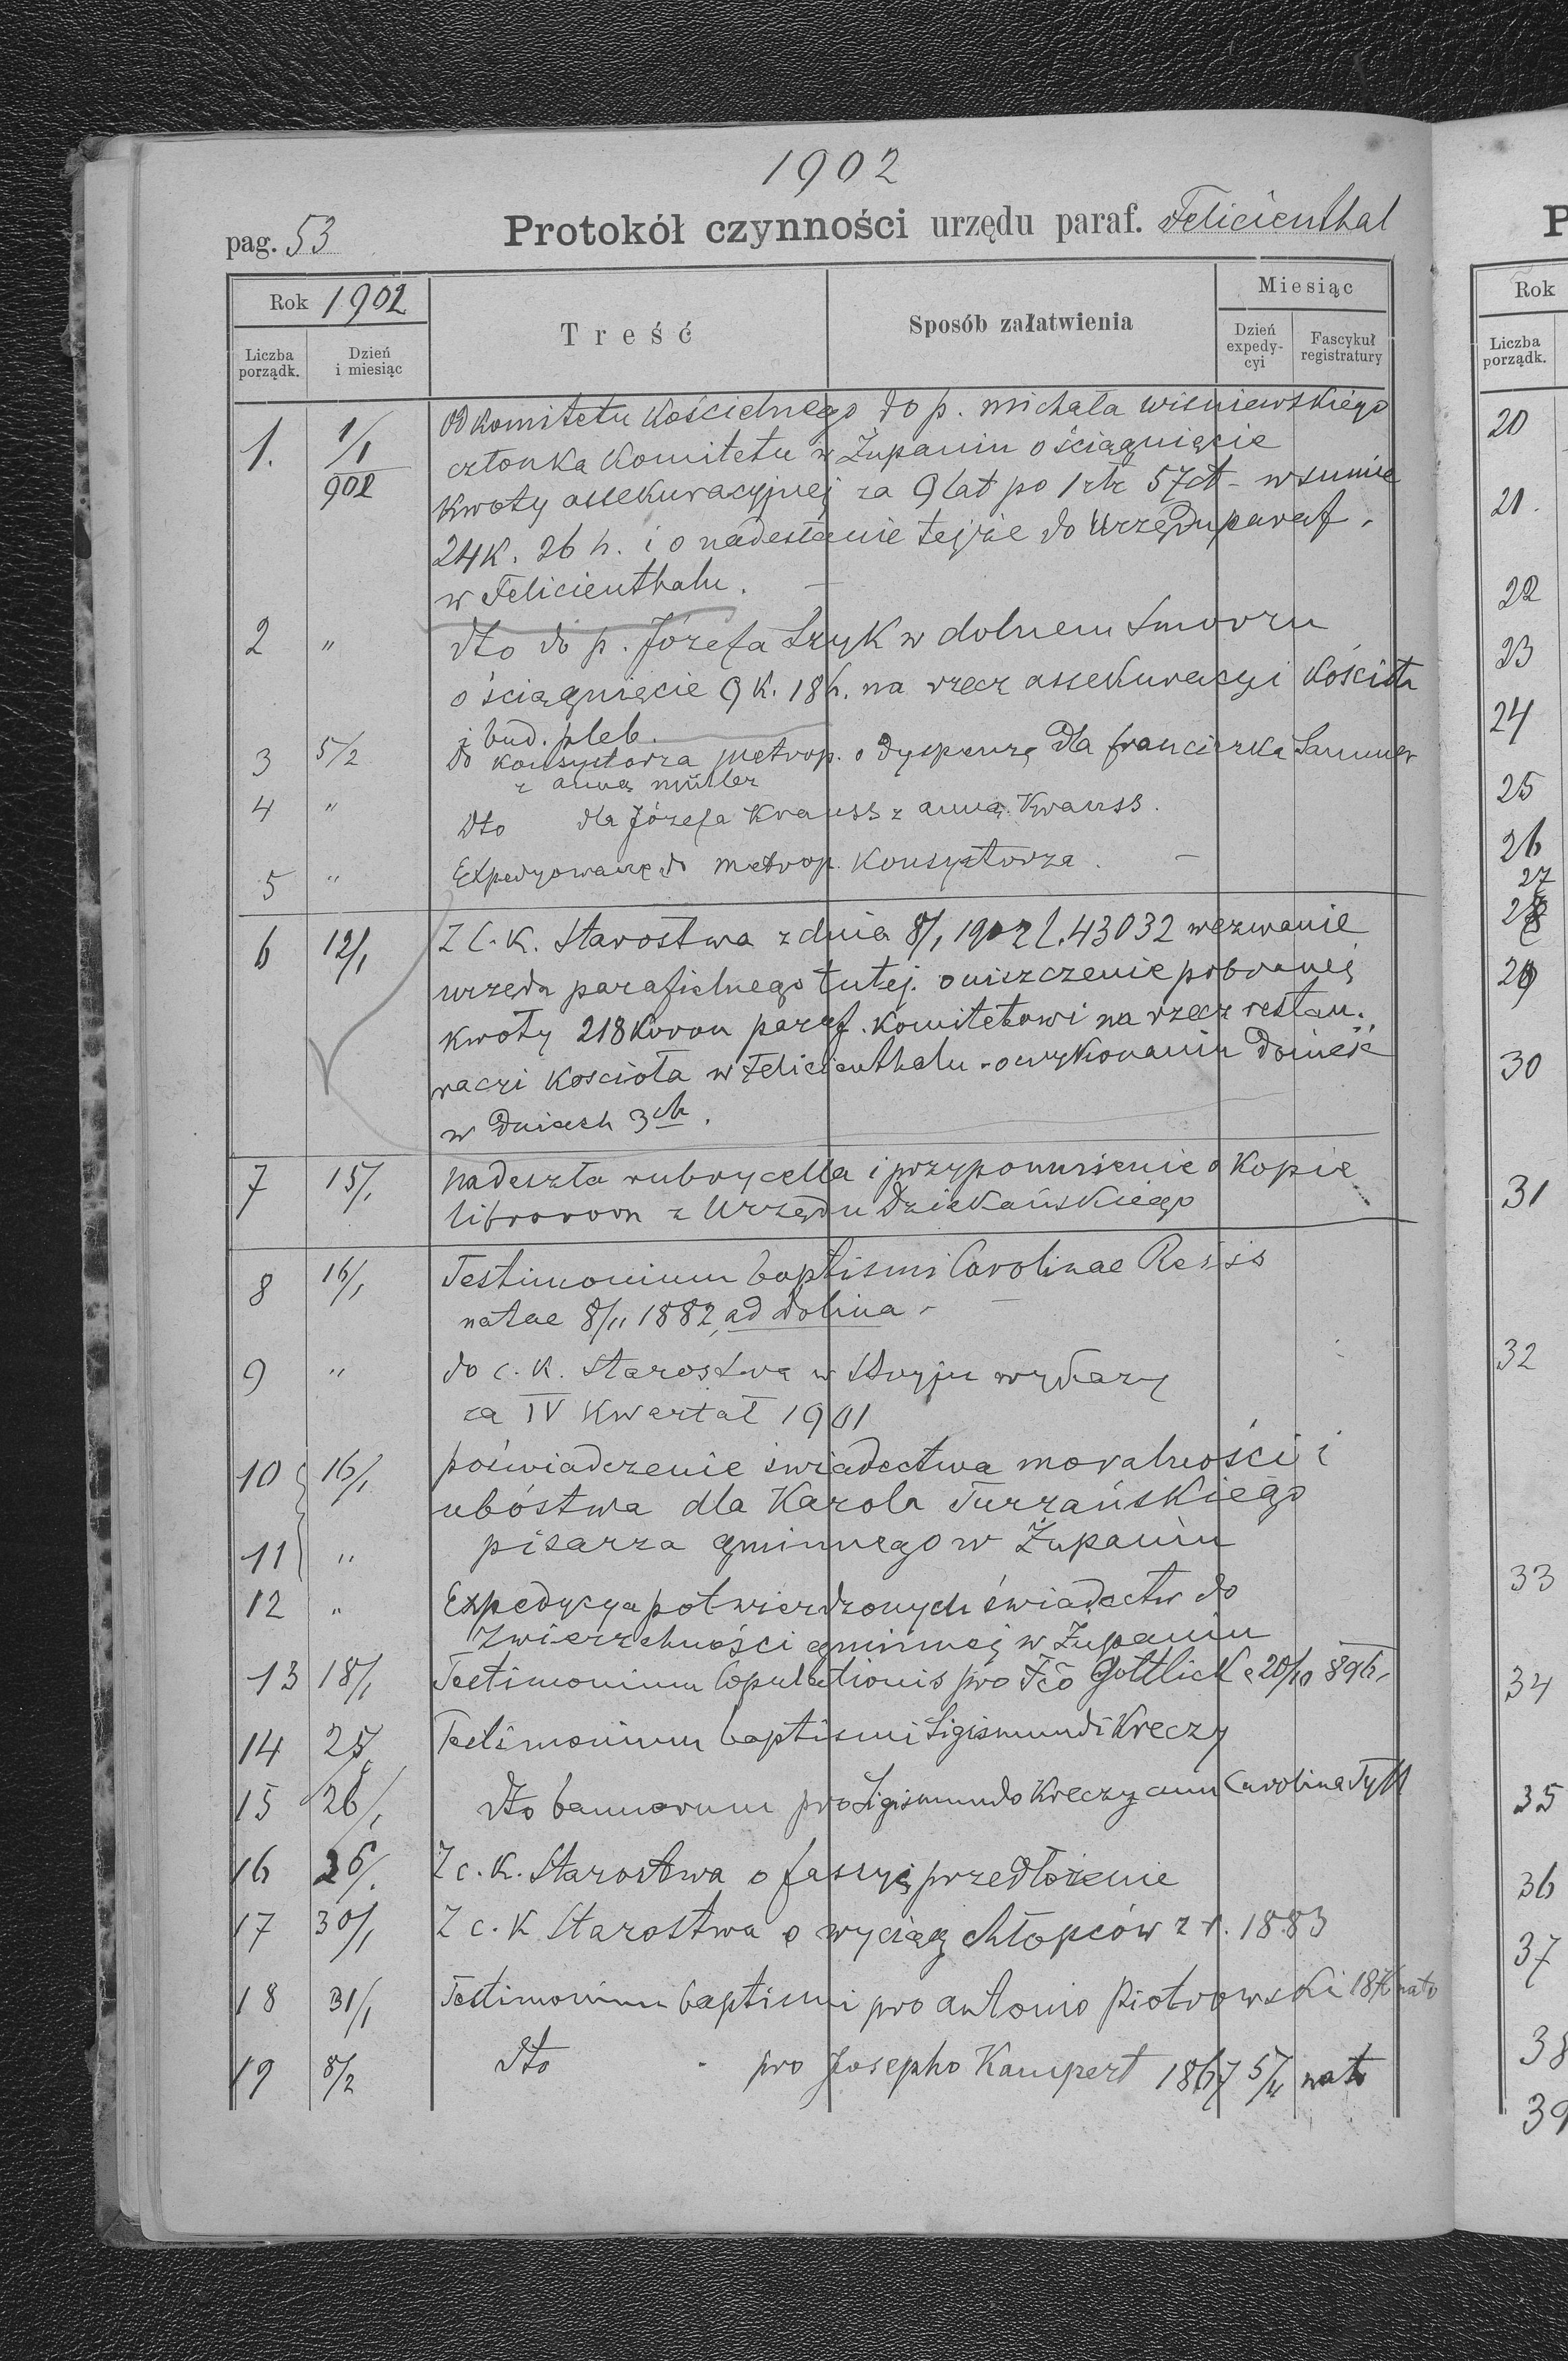 1902
pag. 53 Protokół czynności urzędu paraf. Felicienthal
Rok 1902
Liczba porządk.
Dzień i miesiąc
Treść
Sposób załatwienia
Miesiąc
Dzień expedycyi
Fascykuł registratury
1. 1/1 902 Od komitetu kościelnego do p. Michała Wiśniewskiego
członka komitetu w Żupaniu o ściągnięcie
kwoty assekuracyjnej za 9 lat po 1 złr 57 ct - w sumie
24 K. 26 h. i o nadesłanie tejże do Urzędu paraf.
w Felicienthalu. —
2 " dto do p. Józefa Szyk w dolnem Smorzu
o ściągnięcie 9 K. 18 h. na rzecz assekuracyi kościoła
i bud. pleb.
3 5/2 do konsystorza metrop. o dyspenzę dla Franciszka Sammer
z Anną Müller
4 " dto dla Józefa Krauss z Anną Krauss.
5 " Expedyowane do metrop. Konsystorza. —
6 12/1 Z C. K. Starostwa z dnia 8/1 1902 l. 43032 wezwanie
urzędu parafielnego tutej. o uiszczenie pobranej
kwoty 218 koron paraf. komitetowi na rzecz restau.
raczi kościoła w Felicienthalu - o wykonaniu donieść
w dniach 3ch.
7 15/1 Nadeszła rubrycella i przypomnienie o kopie
librorum z Urzędu Dziekańskiego
8 16/1 Testimonium baptismi Carolinae Reiss
natae 8/11 1882, ad Dolina - —
9 " do c. K. Starostwa w Stryju wykazy
za IV Kwartał 1901
10 16/1 poświadczenie świadectwa moralności i
ubóstwa dla Karola Turzańskiego
11 " pisarza gminnego w Żupaniu
12 " Expedycya potwierdzonych świadectw do
zwierzchności gminnej w Żupaniu
13 18/1 Testimonium Copulationis pro Fco Gottlick 20/10 89
14 25/1 Testimonium baptismi Sigismundi Kreczy
15 26/1 dto bannorum pro Sigismundo Kreczy cum Carolina
16 26/1 Z c. K. Starostwa o fassyę przedłożenie
17 30/1 Z c. K Starostwa o wyciąg chłopców z r. 1883
18 31/1 Testimonium baptismi pro Antonio Piotrowski nato
19 8/2 dto - pro Josepho Kampert 1867 5/11 nato
P
Rok
Liczba porządk.
20
21.
22
23
24
25
26
27
28
29
30
31
32
33
34
35
36
37
38
39